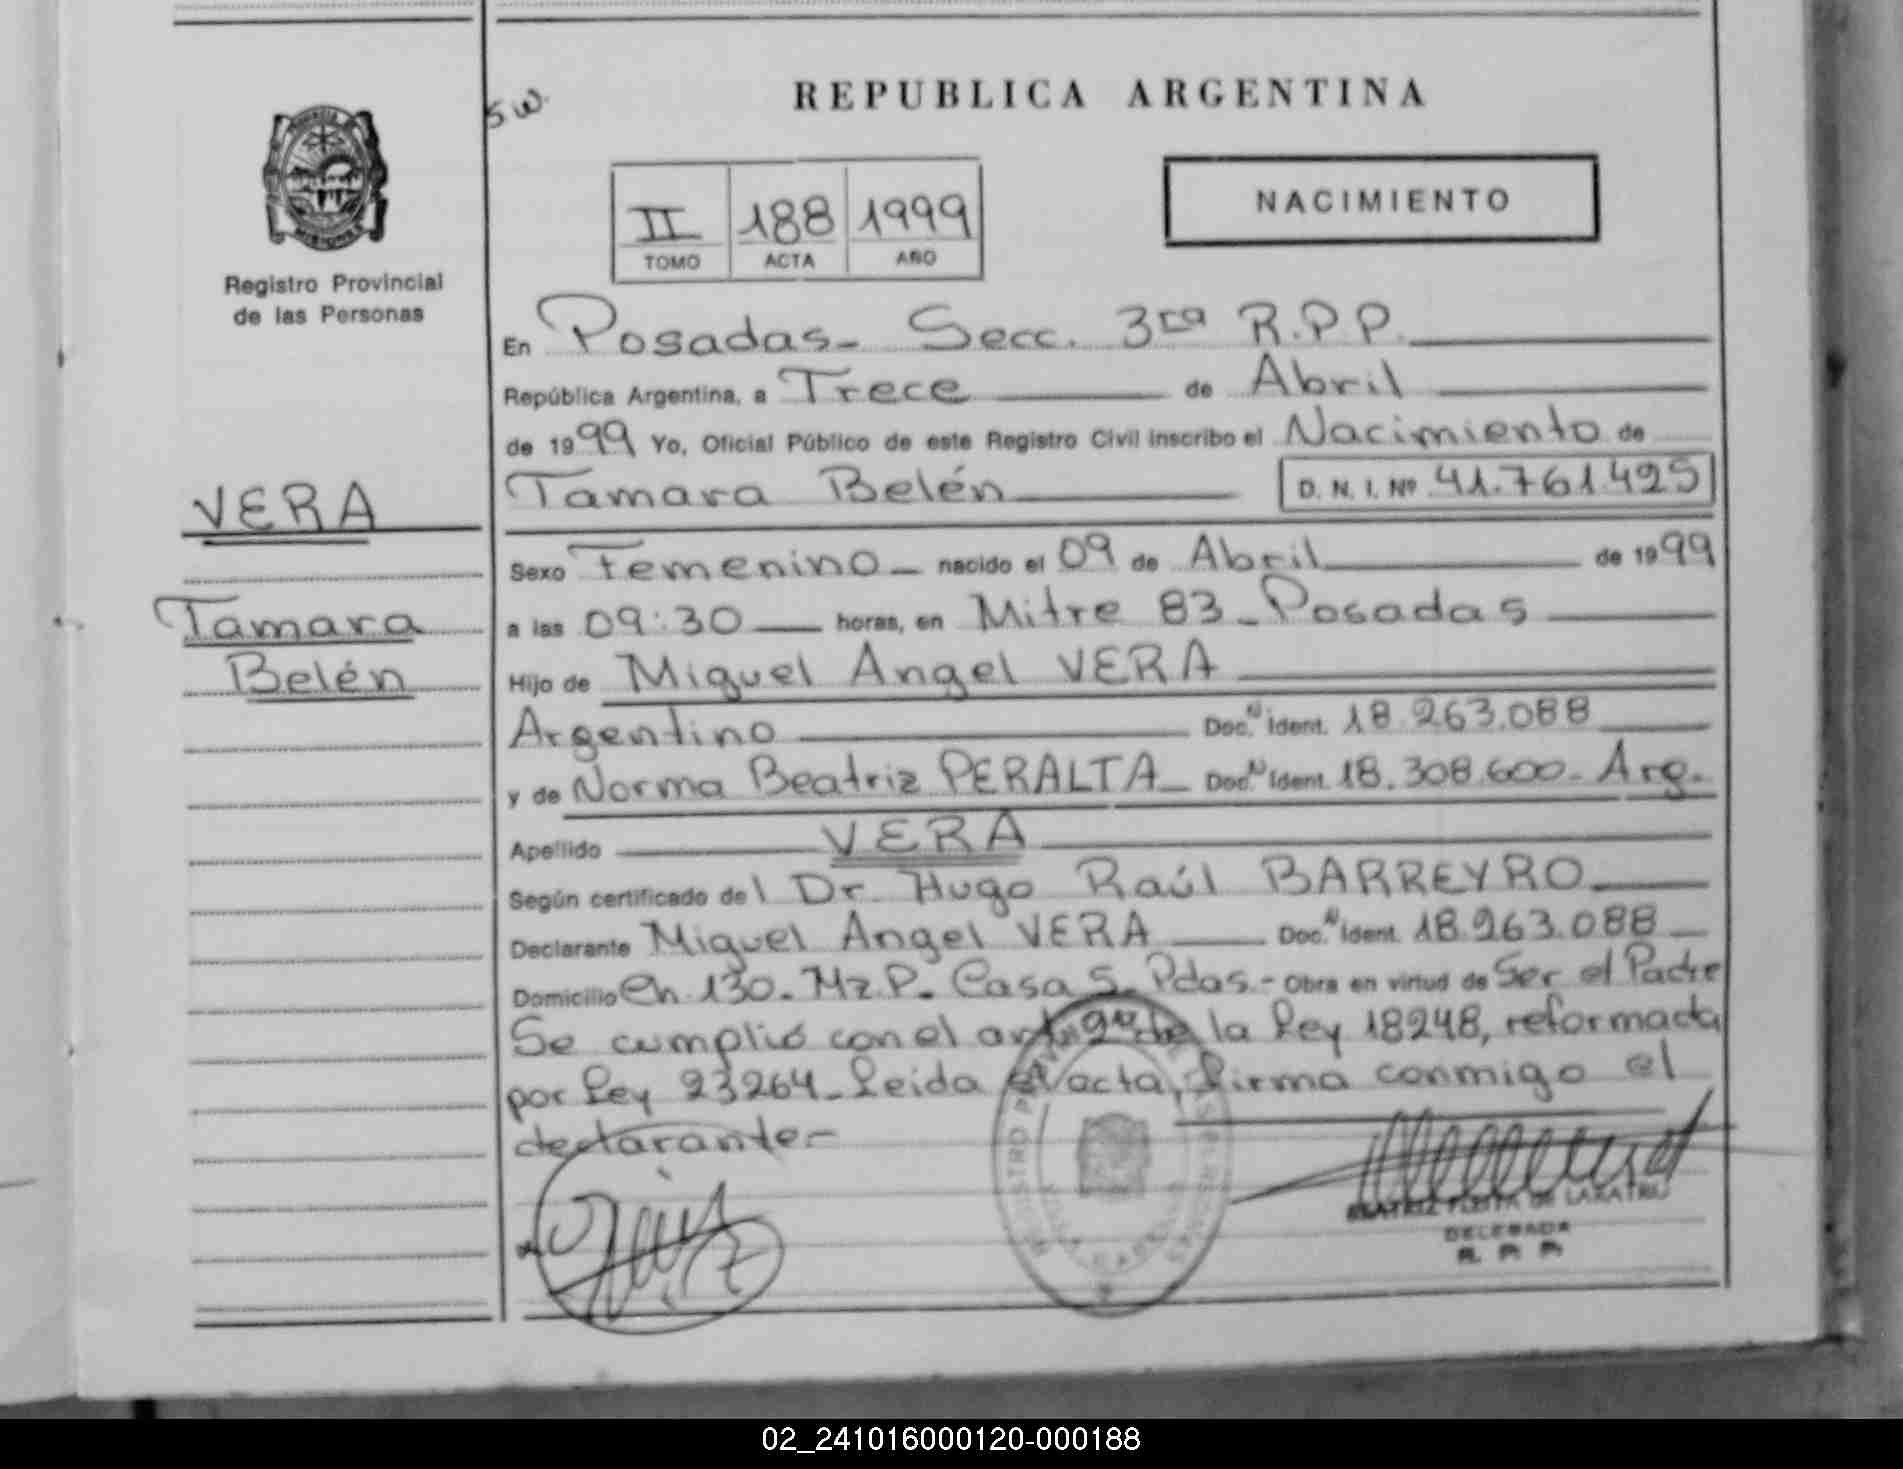 REPUBLICA ARGENTINA
NACIMIENTO
II 188 1999
TOMO ACTA AÑO
Registro Provincial
de las Personas
VERA
Tamara
Belén
En Posadas- Secc. 3ra R.P.P.
República Argentina, a Trece de Abril
de 1999 Yo, Oficial Público de este Registro Civil inscribo el Nacimiento de
Tamara Belén D. N. I. Nº 41.761.425
Sexo Femenino nacido el 09 de Abril de 1999
a las 09:30 horas, en Mitre 83 - Posadas
Hijo de Miguel Angel VERA
Argentino Doc. N Ident. 18.263.088
y de Norma Beatriz PERALTA Doc. N Ident. 18.308.600 - Arg.
Apellido VERA
Según certificado del Dr. Hugo Raúl BARREYRO
Declarante Miguel Angel VERA Doc. N Ident. 18.263.088
Domicilio Ch. 130. Mz. P. Casa 5. Pdas. - Obra en virtud de Ser el Padre
Se cumplió con el art. 2º de la Ley 18248, reformada
por Ley 23264. Leida el acta, firma conmigo el
declarante-
DELEGADA
R. P. P.
02_241016000120-000188